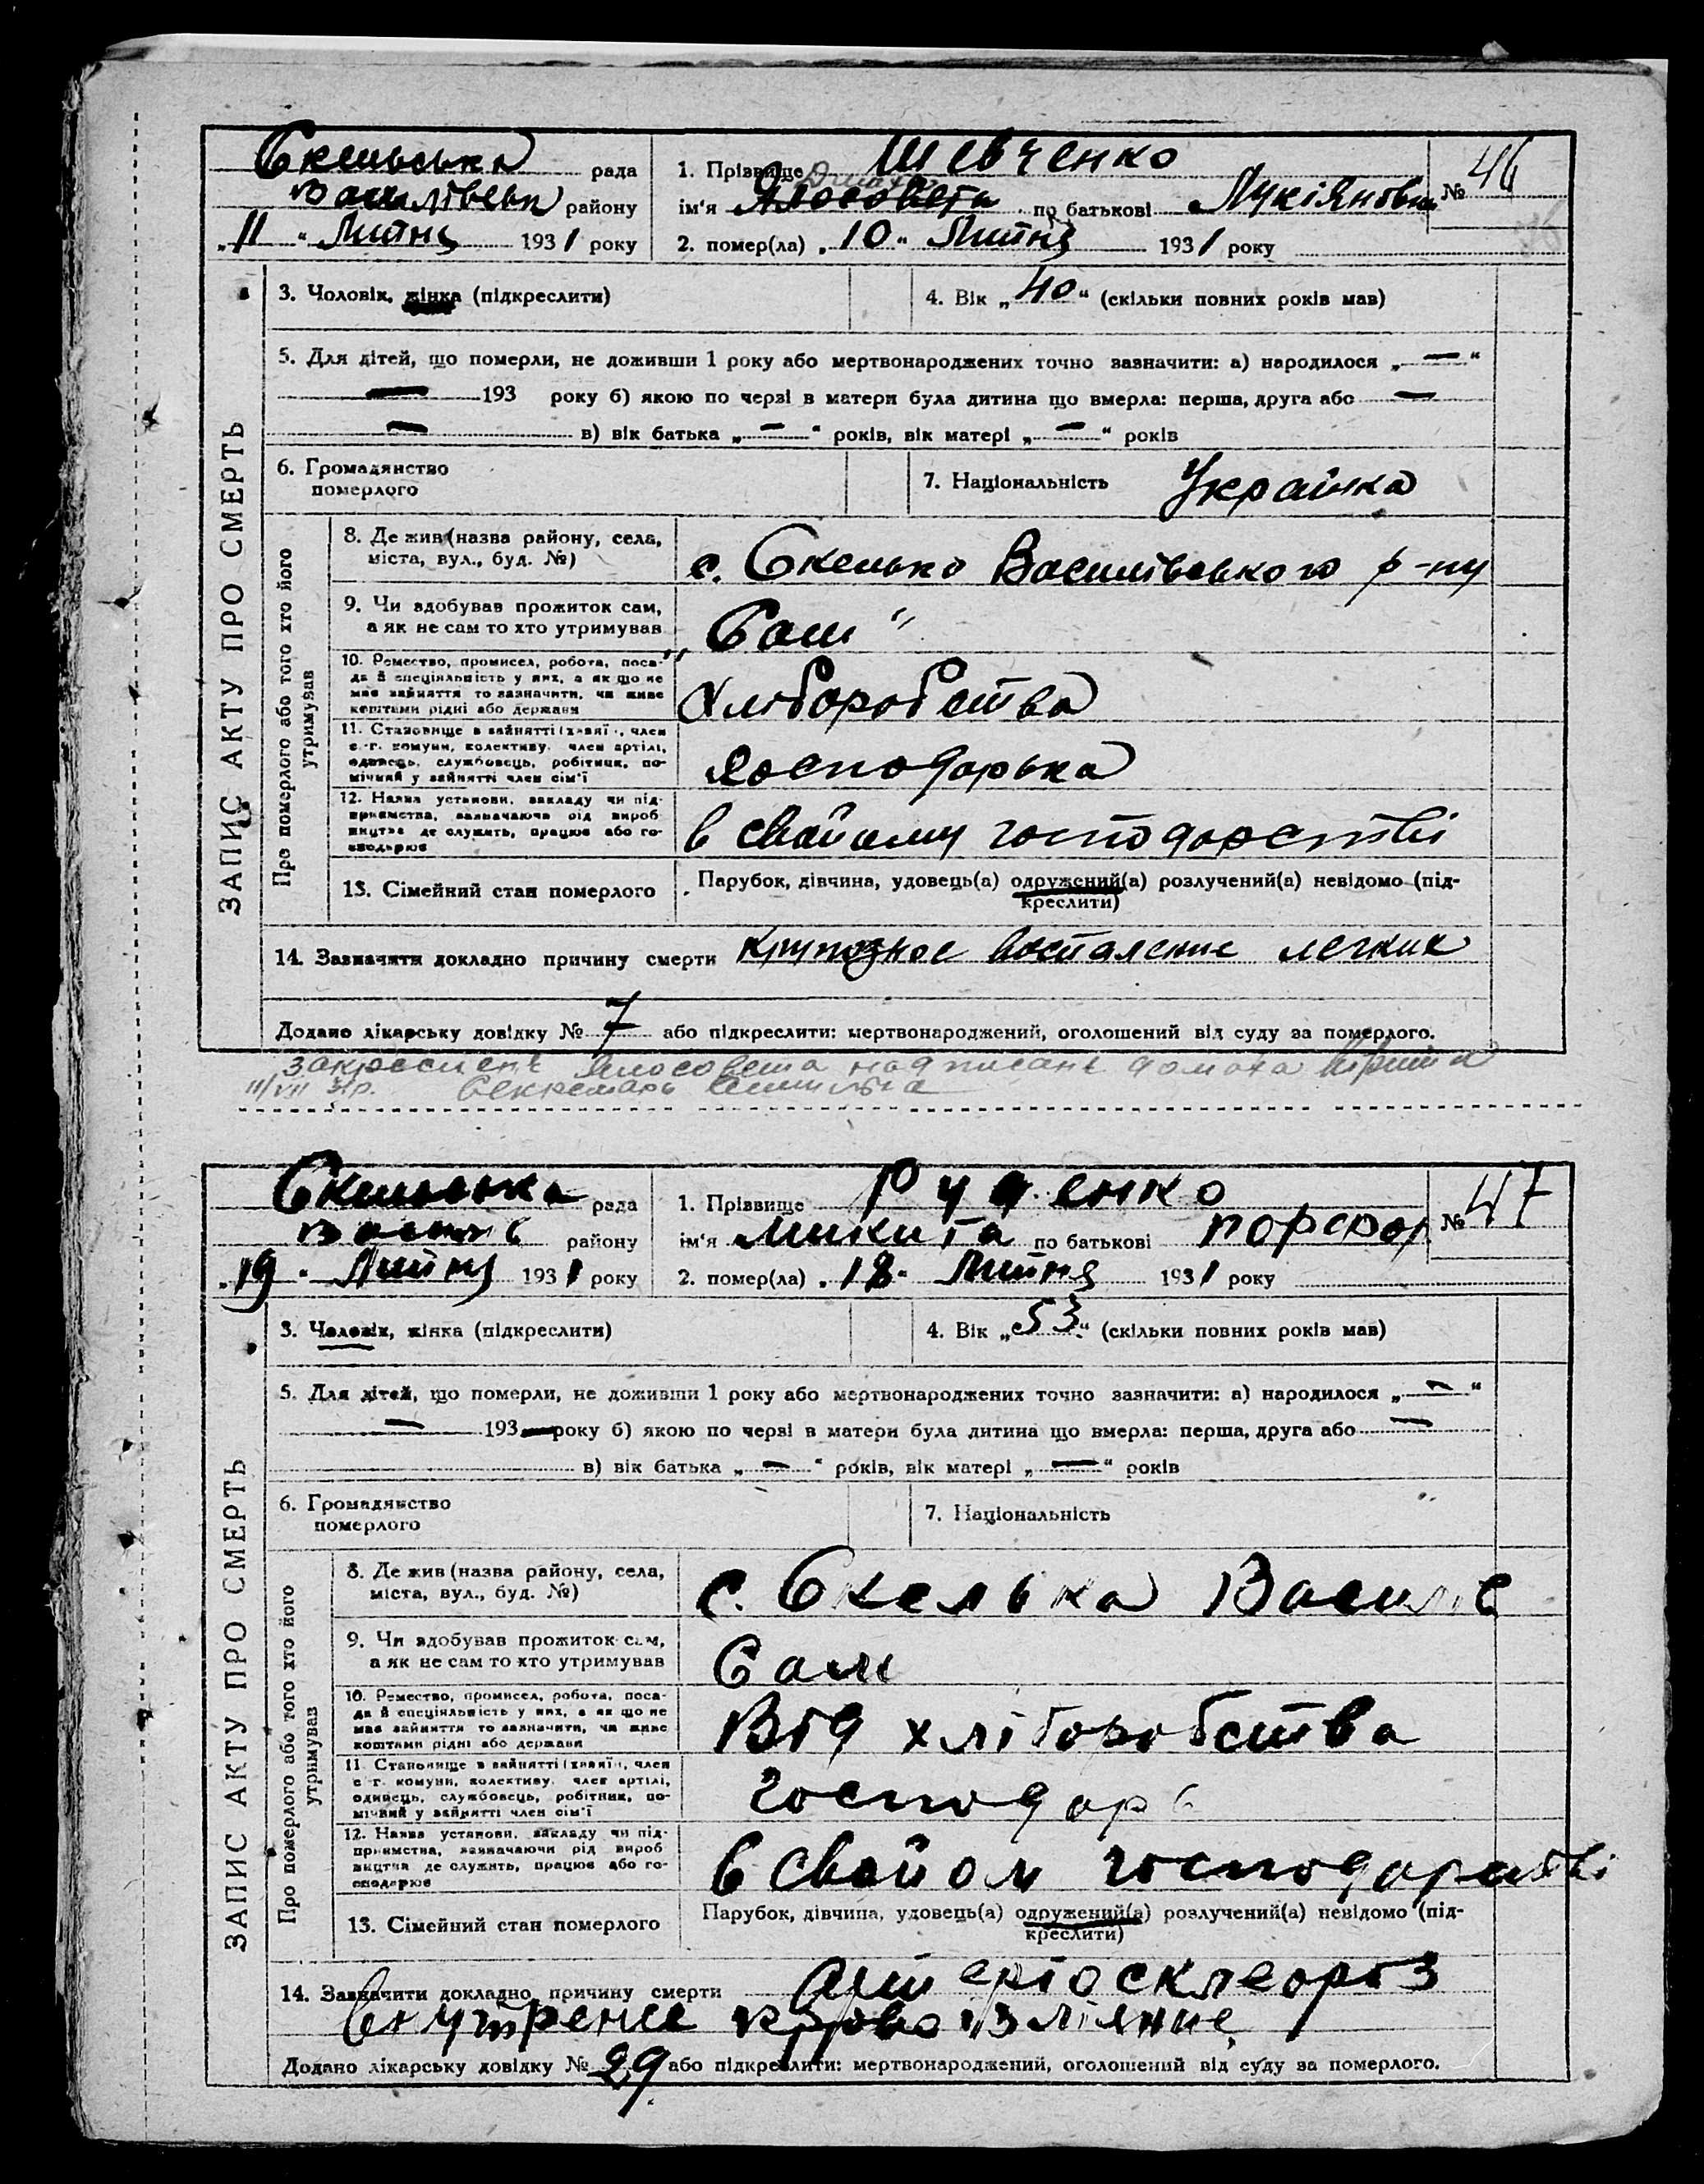 Скельська рада
Василівськ району
„11“ Липня 1931 року
1. Прізвище Шевченко
ім'я по батькові Лукіяновна
№ 46
2. помер(ла) „10“ Липня 1931 року
ЗАПИС АКТУ ПРО СМЕРТЬ
3. Чоловік, жінка (підкреслити)
4. Вік „40“ (скільки повних років мав)
5. Для дітей, що померли, не доживши 1 року або мертвонароджених точно зазначити: а) народилося „—“
— 193 року б) якою по черзі в матери була дитина що вмерла: перша, друга або —
— в) вік батька „—“ років, вік матері „—“ років
6. Громадянство
померлого
7. Національність Українка
Про померлого або того хто його
утримував
8. Де жив (назва району, села,
міста, вул., буд. №)
с. Скелько Василівського р-ну
9. Чи здобував прожиток сам,
а як не сам то хто утримував
„Сам“
10. Ремество, промисел, робота, поса-
да й спеціяльність у них, а як що не
мав зайняття то зазначити, чи живе
коштами рідні або держави
Хліборобства
11. Становище в зайнятті (хазяїн, член
с.-г. комуни, колективу, член артілі,
одинець, службовець, робітник, по-
мічний у зайнятті член сім'ї
Господарька
12. Назва установи, закладу чи під-
приємства, зазначаючи рід вироб
ництва де служить, працює або го-
сподарює
в свойому господарстві
13. Сімейний стан померлого
Парубок, дівчина, удовець(а) одружений(а) розлучений(а) невідомо (під-
креслити)
14. Зазначити докладно причину смерти крупозное воспаление легких
Додано лікарську довідку № 7 або підкреслити: мертвонароджений, оголошений від суду за померлого.
надписане
Секретарь
Скельська рада
Василів району
„19“ Липня 1931 року
1. Прізвище Руденко
ім'я Микита по батькові Порфор
№ 47
2. помер(ла) „18“ Липня 1931 року
ЗАПИС АКТУ ПРО СМЕРТЬ
3. Чоловік, жінка (підкреслити)
4. Вік „53“ (скільки повних років мав)
5. Для дітей, що померли, не доживши 1 року або мертвонароджених точно зазначити: а) народилося „—“
— 193— року б) якою по черзі в матери була дитина що вмерла: перша, друга або —
в) вік батька „—“ років, вік матері „—“ років
6. Громадянство
померлого
7. Національність
Про померлого або того хто його
утримував
8. Де жив (назва району, села,
міста, вул., буд. №)
с. Скелька Василів
9. Чи здобував прожиток сам,
а як не сам то хто утримував
Сам
10. Ремество, промисел, робота, поса-
да й спеціяльність у них, а як що не
мав зайняття то зазначити, чи живе
коштами рідні або держави
Від хліборобства
11. Становище в зайнятті (хазяїн, член
с.-г. комуни, колективу, член артілі,
одинець, службовець, робітник, по-
мічний у зайнятті член сім'ї
Господарь
12. Назва установи, закладу чи під-
приємства, зазначаючи рід вироб
ництва де служить, працює або го-
сподарює
в свойом господарстві
13. Сімейний стан померлого
Парубок, дівчина, удовець(а) одружений(а) розлучений(а) невідомо (під-
креслити)
14. Зазначити докладно причину смерти артеріосклеороз
внутренее кровоизліяние
Додано лікарську довідку № 29 або підкреслити: мертвонароджений, оголошений від суду за померлого.